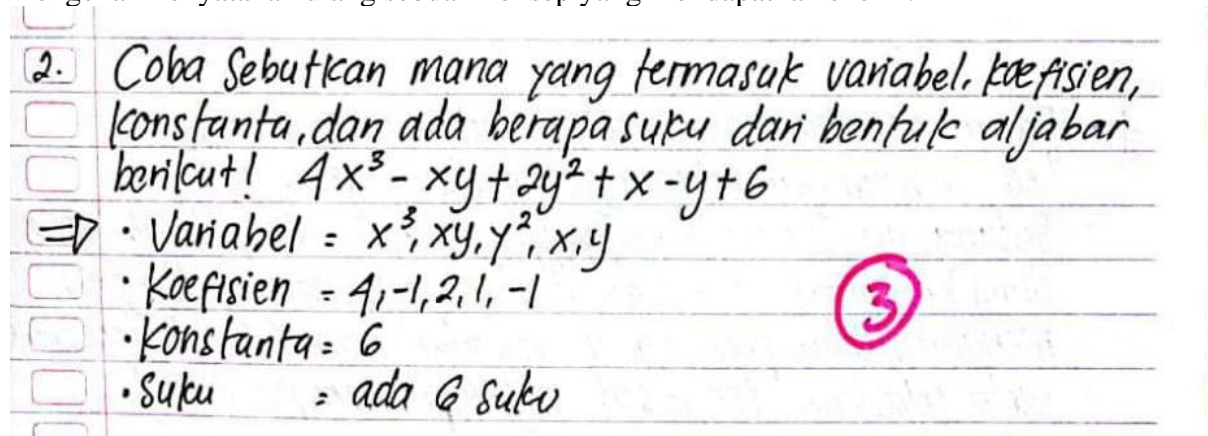 2. Coba Sebutkan mana yang termasuk variabel, koefisien,
konstanta, dan ada berapa suku dari bentuk aljabar
berikut! 4x³ - xy + 2y² + x - y + 6
⇒ • Variabel = x³, xy, y², x, y
• Koefisien = 4, -1, 2, 1, -1
3
• Konstanta = 6
• Suku = ada 6 suku